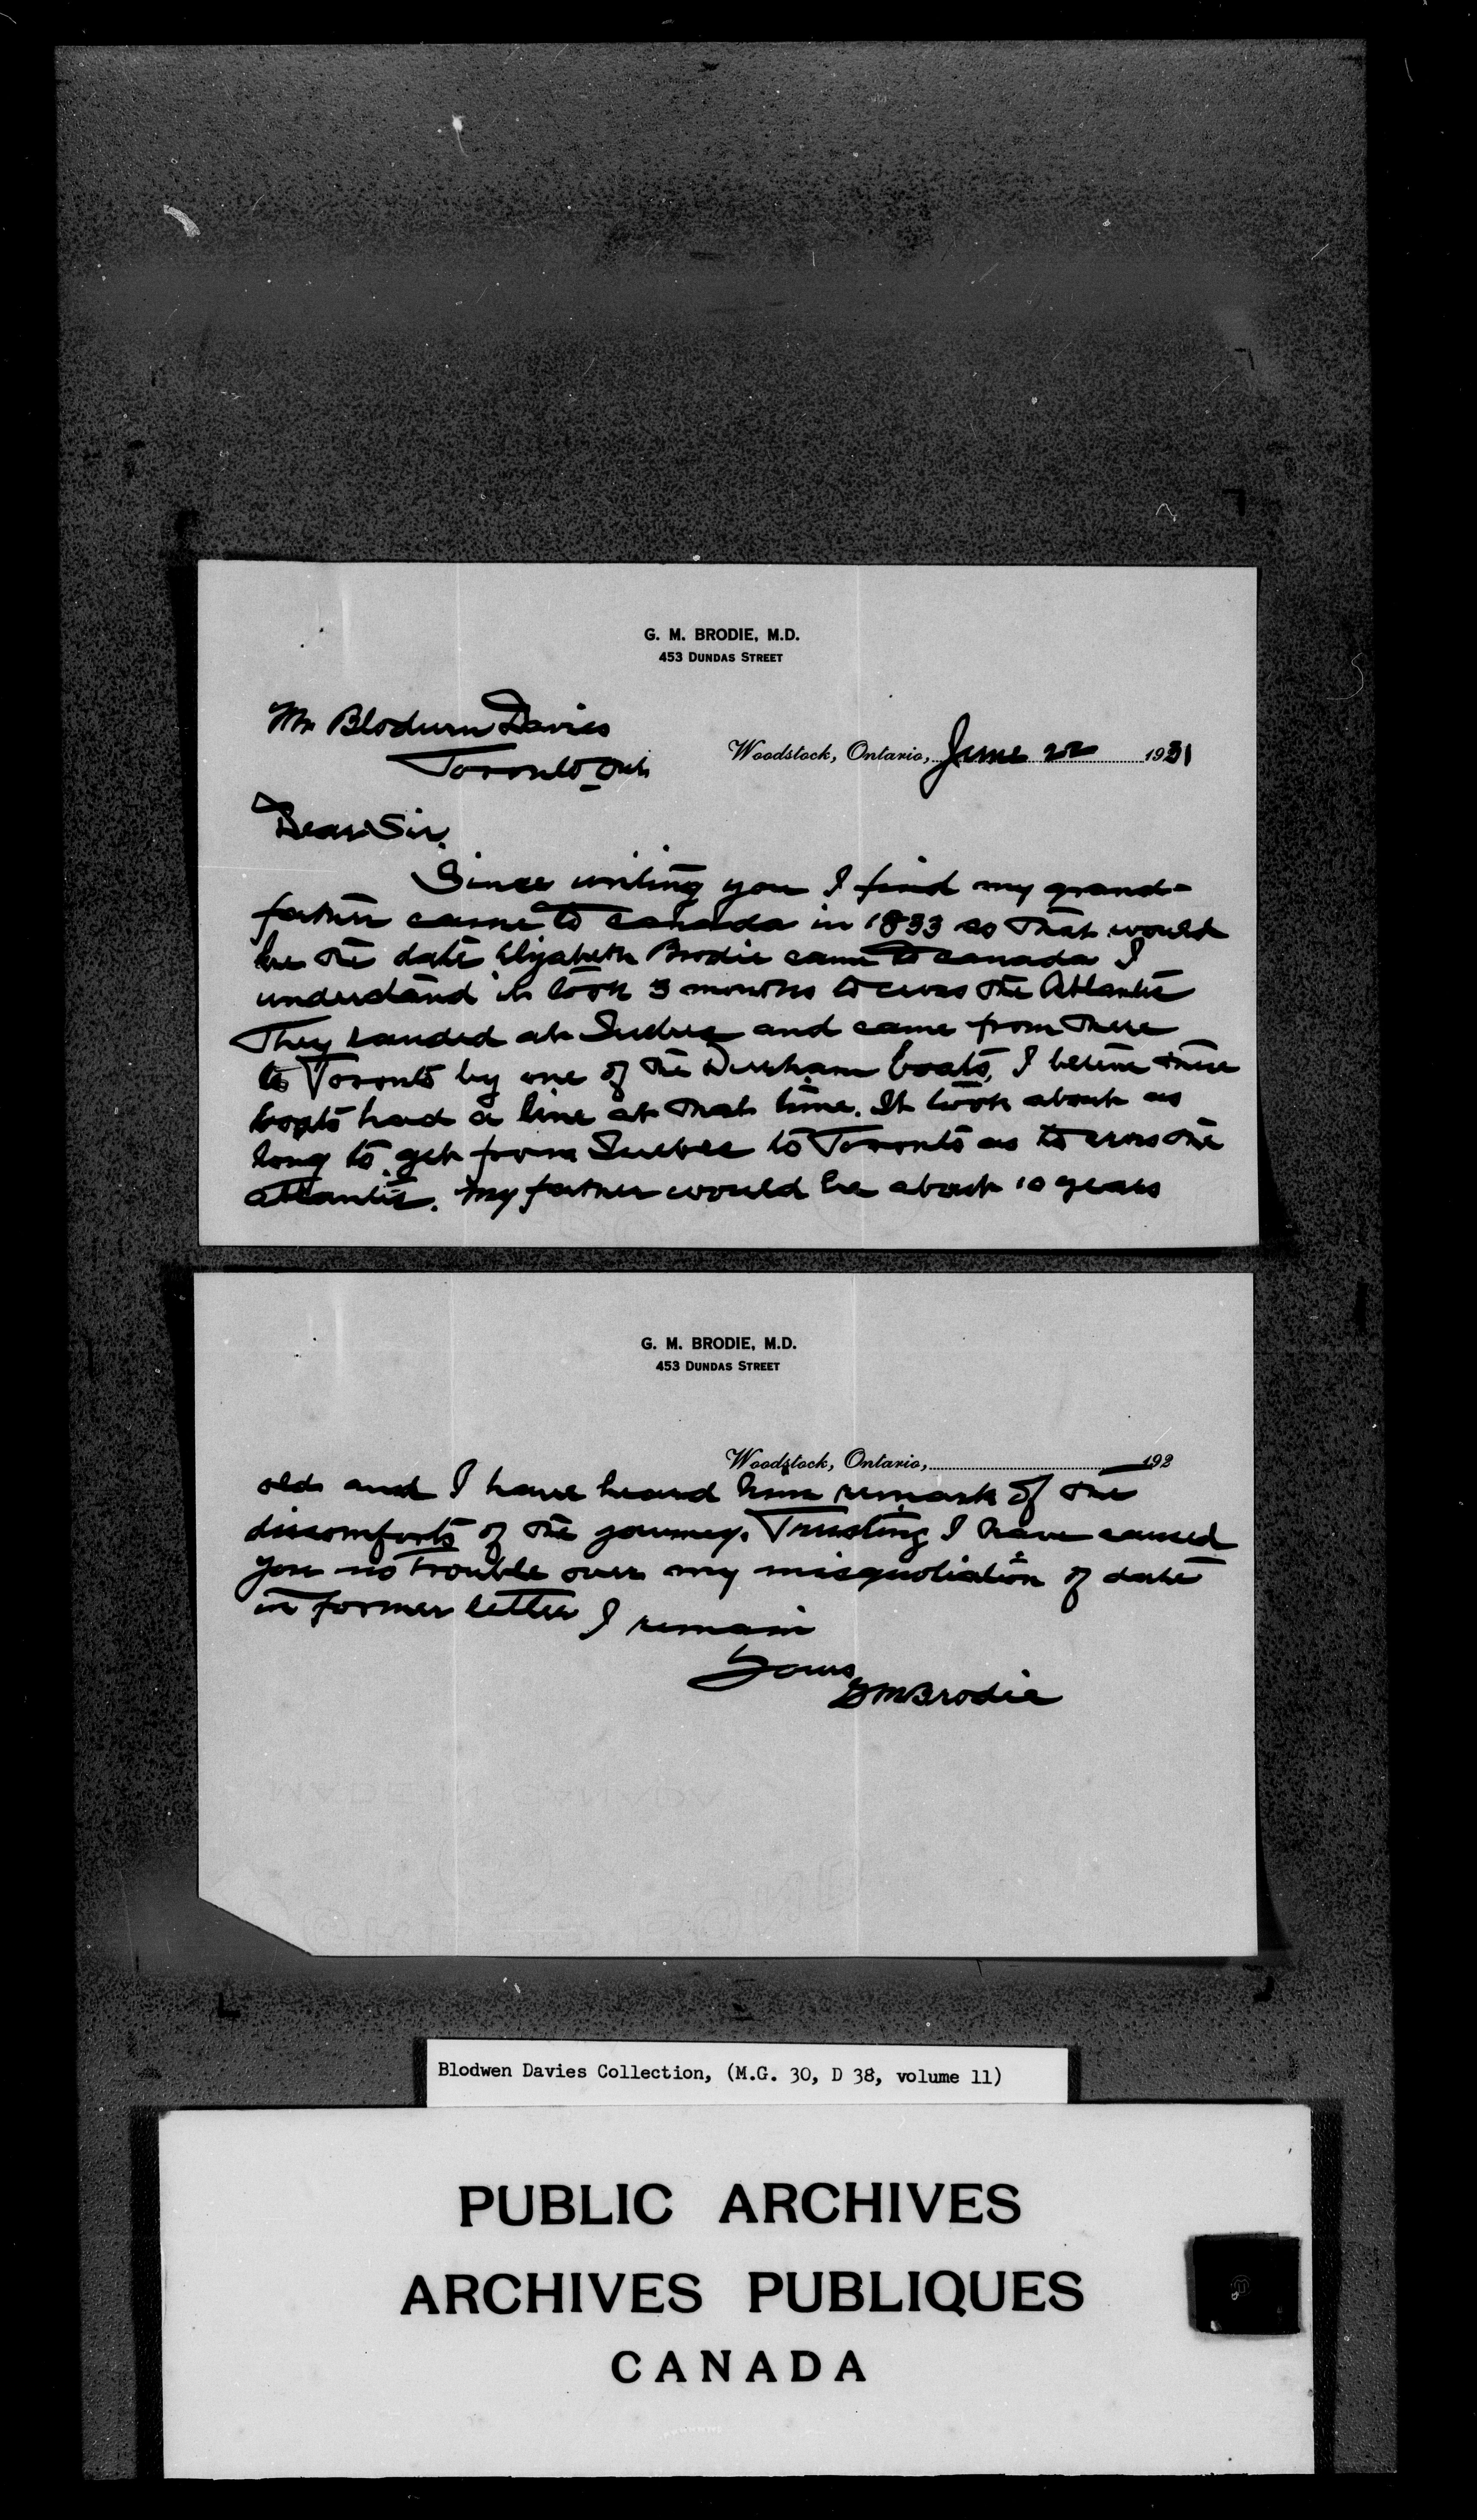 G. M. BRODIE, M.D.
453 DUNDAS STREET
Mr Blodwin Davies
Toronto Ont
Woodstock, Ontario, June 22 1931
Dear Sir.
Since writing you I find my grand-
father came to Canada in 1833 so that would
be the date Elizabeth Brodie came to Canada I
understand it took 3 months to cross the Atlantic
They landed at Quebec and came from there
to Toronto by one of the Durham boats, I believe these
boats had a line at that time. It took about as
long to get from Quebec to Toronto as to cross the
Atlantic. My father would be about 10 years
G. M. BRODIE, M.D.
453 DUNDAS STREET
Woodstock, Ontario, 192
old and I have heard him remark of the
discomforts of the journey. Trusting I have caused
you no trouble over my misquotiation of date
in former letter I remain
Yours
GMBrodie
MADE IN CANADA
BOND
Blodwen Davies Collection, (M.G. 30, D 38, volume 11)
PUBLIC ARCHIVES
ARCHIVES PUBLIQUES
CANADA